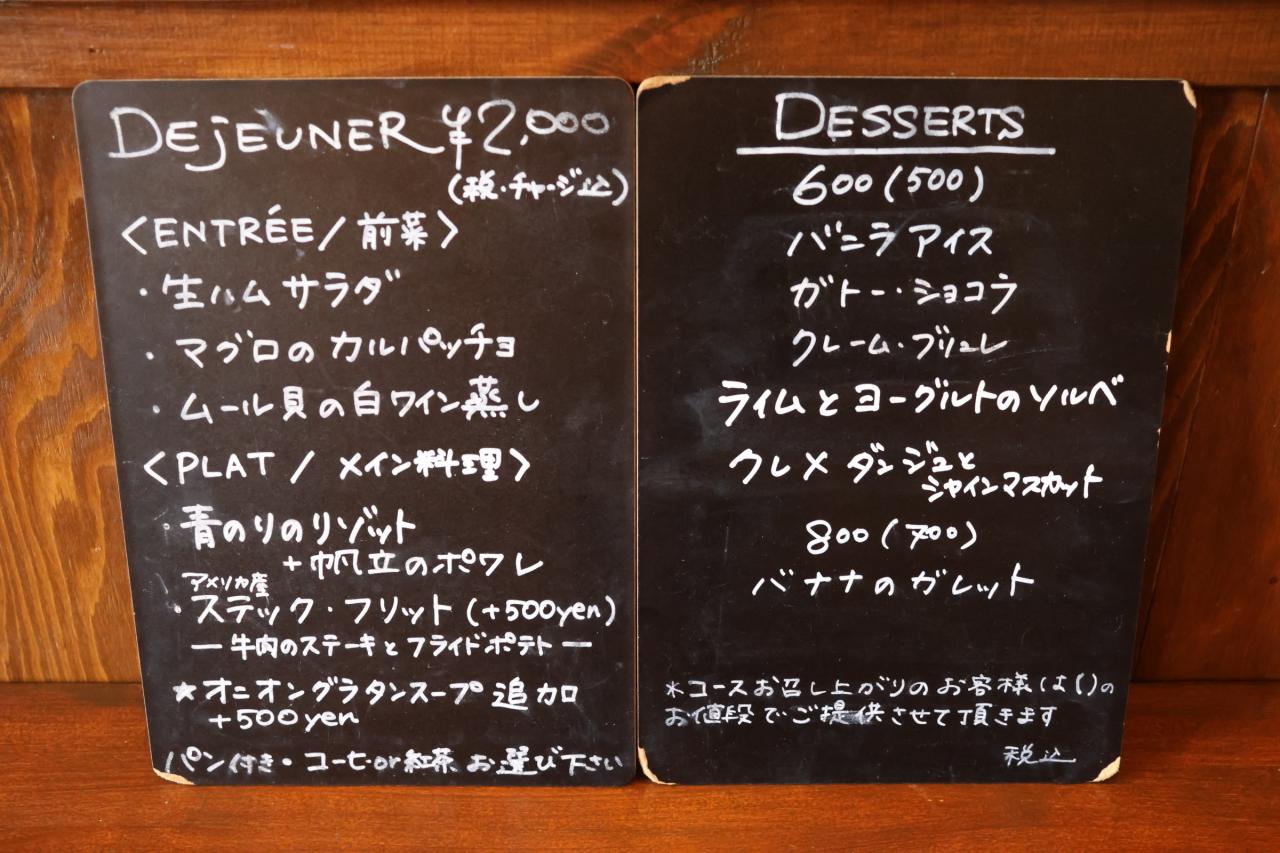 DEjEUNER ¥2,000
(税・チャージ込)
<ENTRÉE / 前菜>
・生ハムサラダ
・マグロのカルパッチョ
・ムール貝の白ワイン蒸し
<PLAT / メイン料理>
・青のりのリゾット
+帆立のポワレ
アメリカ産
・ステック・フリット (+500yen)
ー牛肉のステーキとフライドポテトー
★オニオングラタンスープ 追加
+500yen
パン付き・コーヒーor紅茶 お選び下さい
DESSERTS
600(500)
バニラアイス
ガトー・ショコラ
クレーム・ブリュレ
ライムとヨーグルトのソルベ
クレメダンジュと
シャインマスカット
800(700)
バナナのガレット
*コースお召し上がりのお客様は()の
お値段でご提供させて頂きます
税込